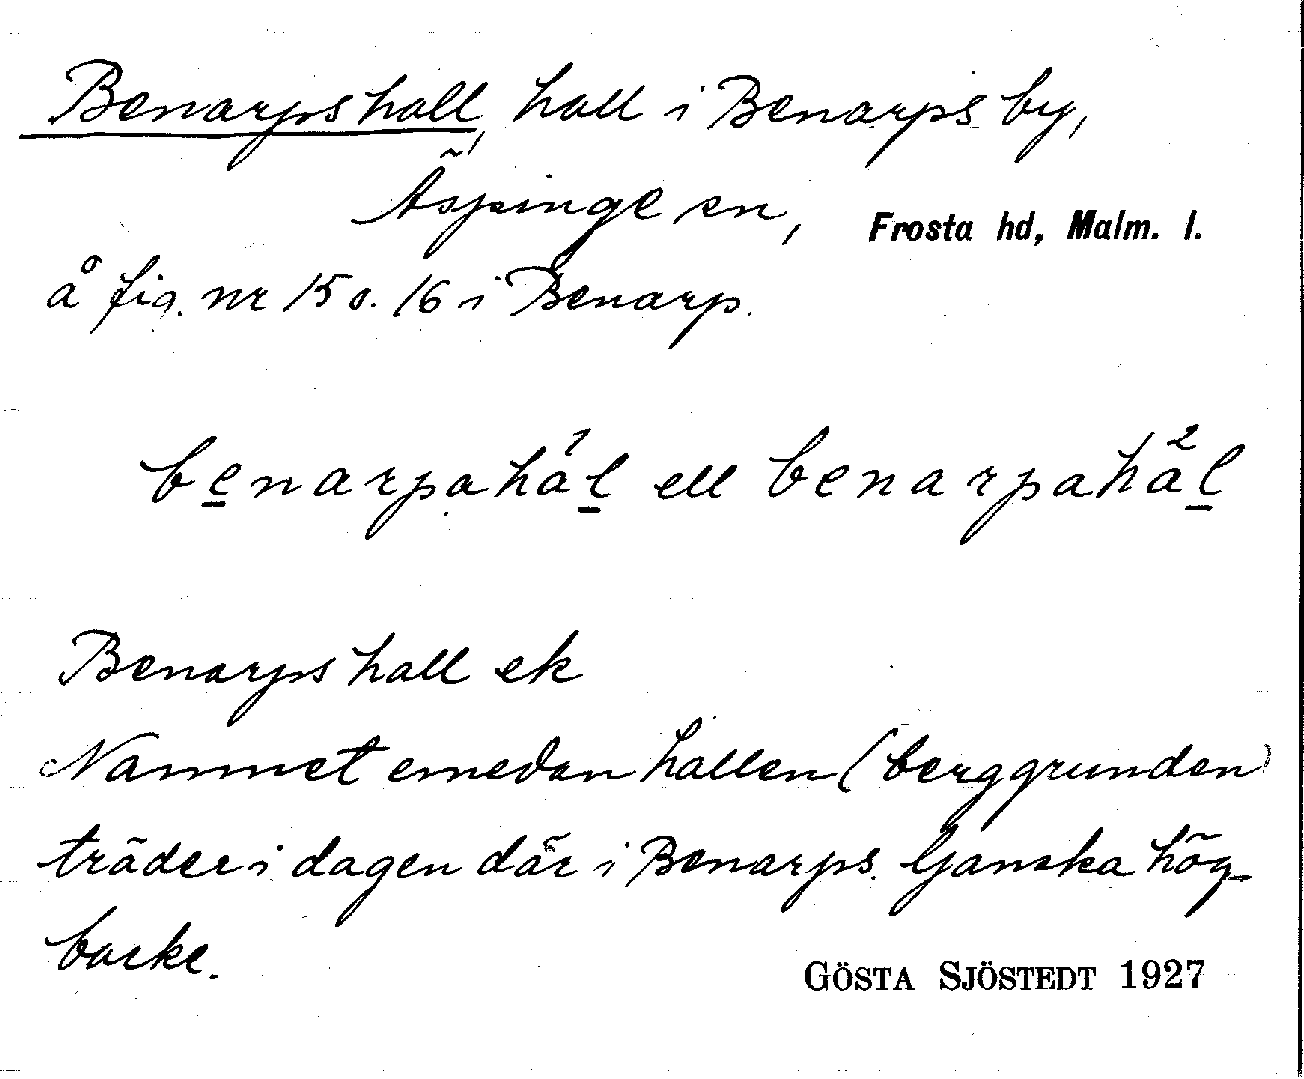 Benarpshall, hall i Benarps by,
Äspinge sn, Frosta hd, Malm. l.
å fig. nr 15 o. 16 i Benarp.
benarpahál ell benarpahàl
Benarpshall ek
Namnet emedan hallen (berggrunden)
träder i dagen där i Benarps. Ganska hög
backe.
GÖSTA SJÖSTEDT 1927